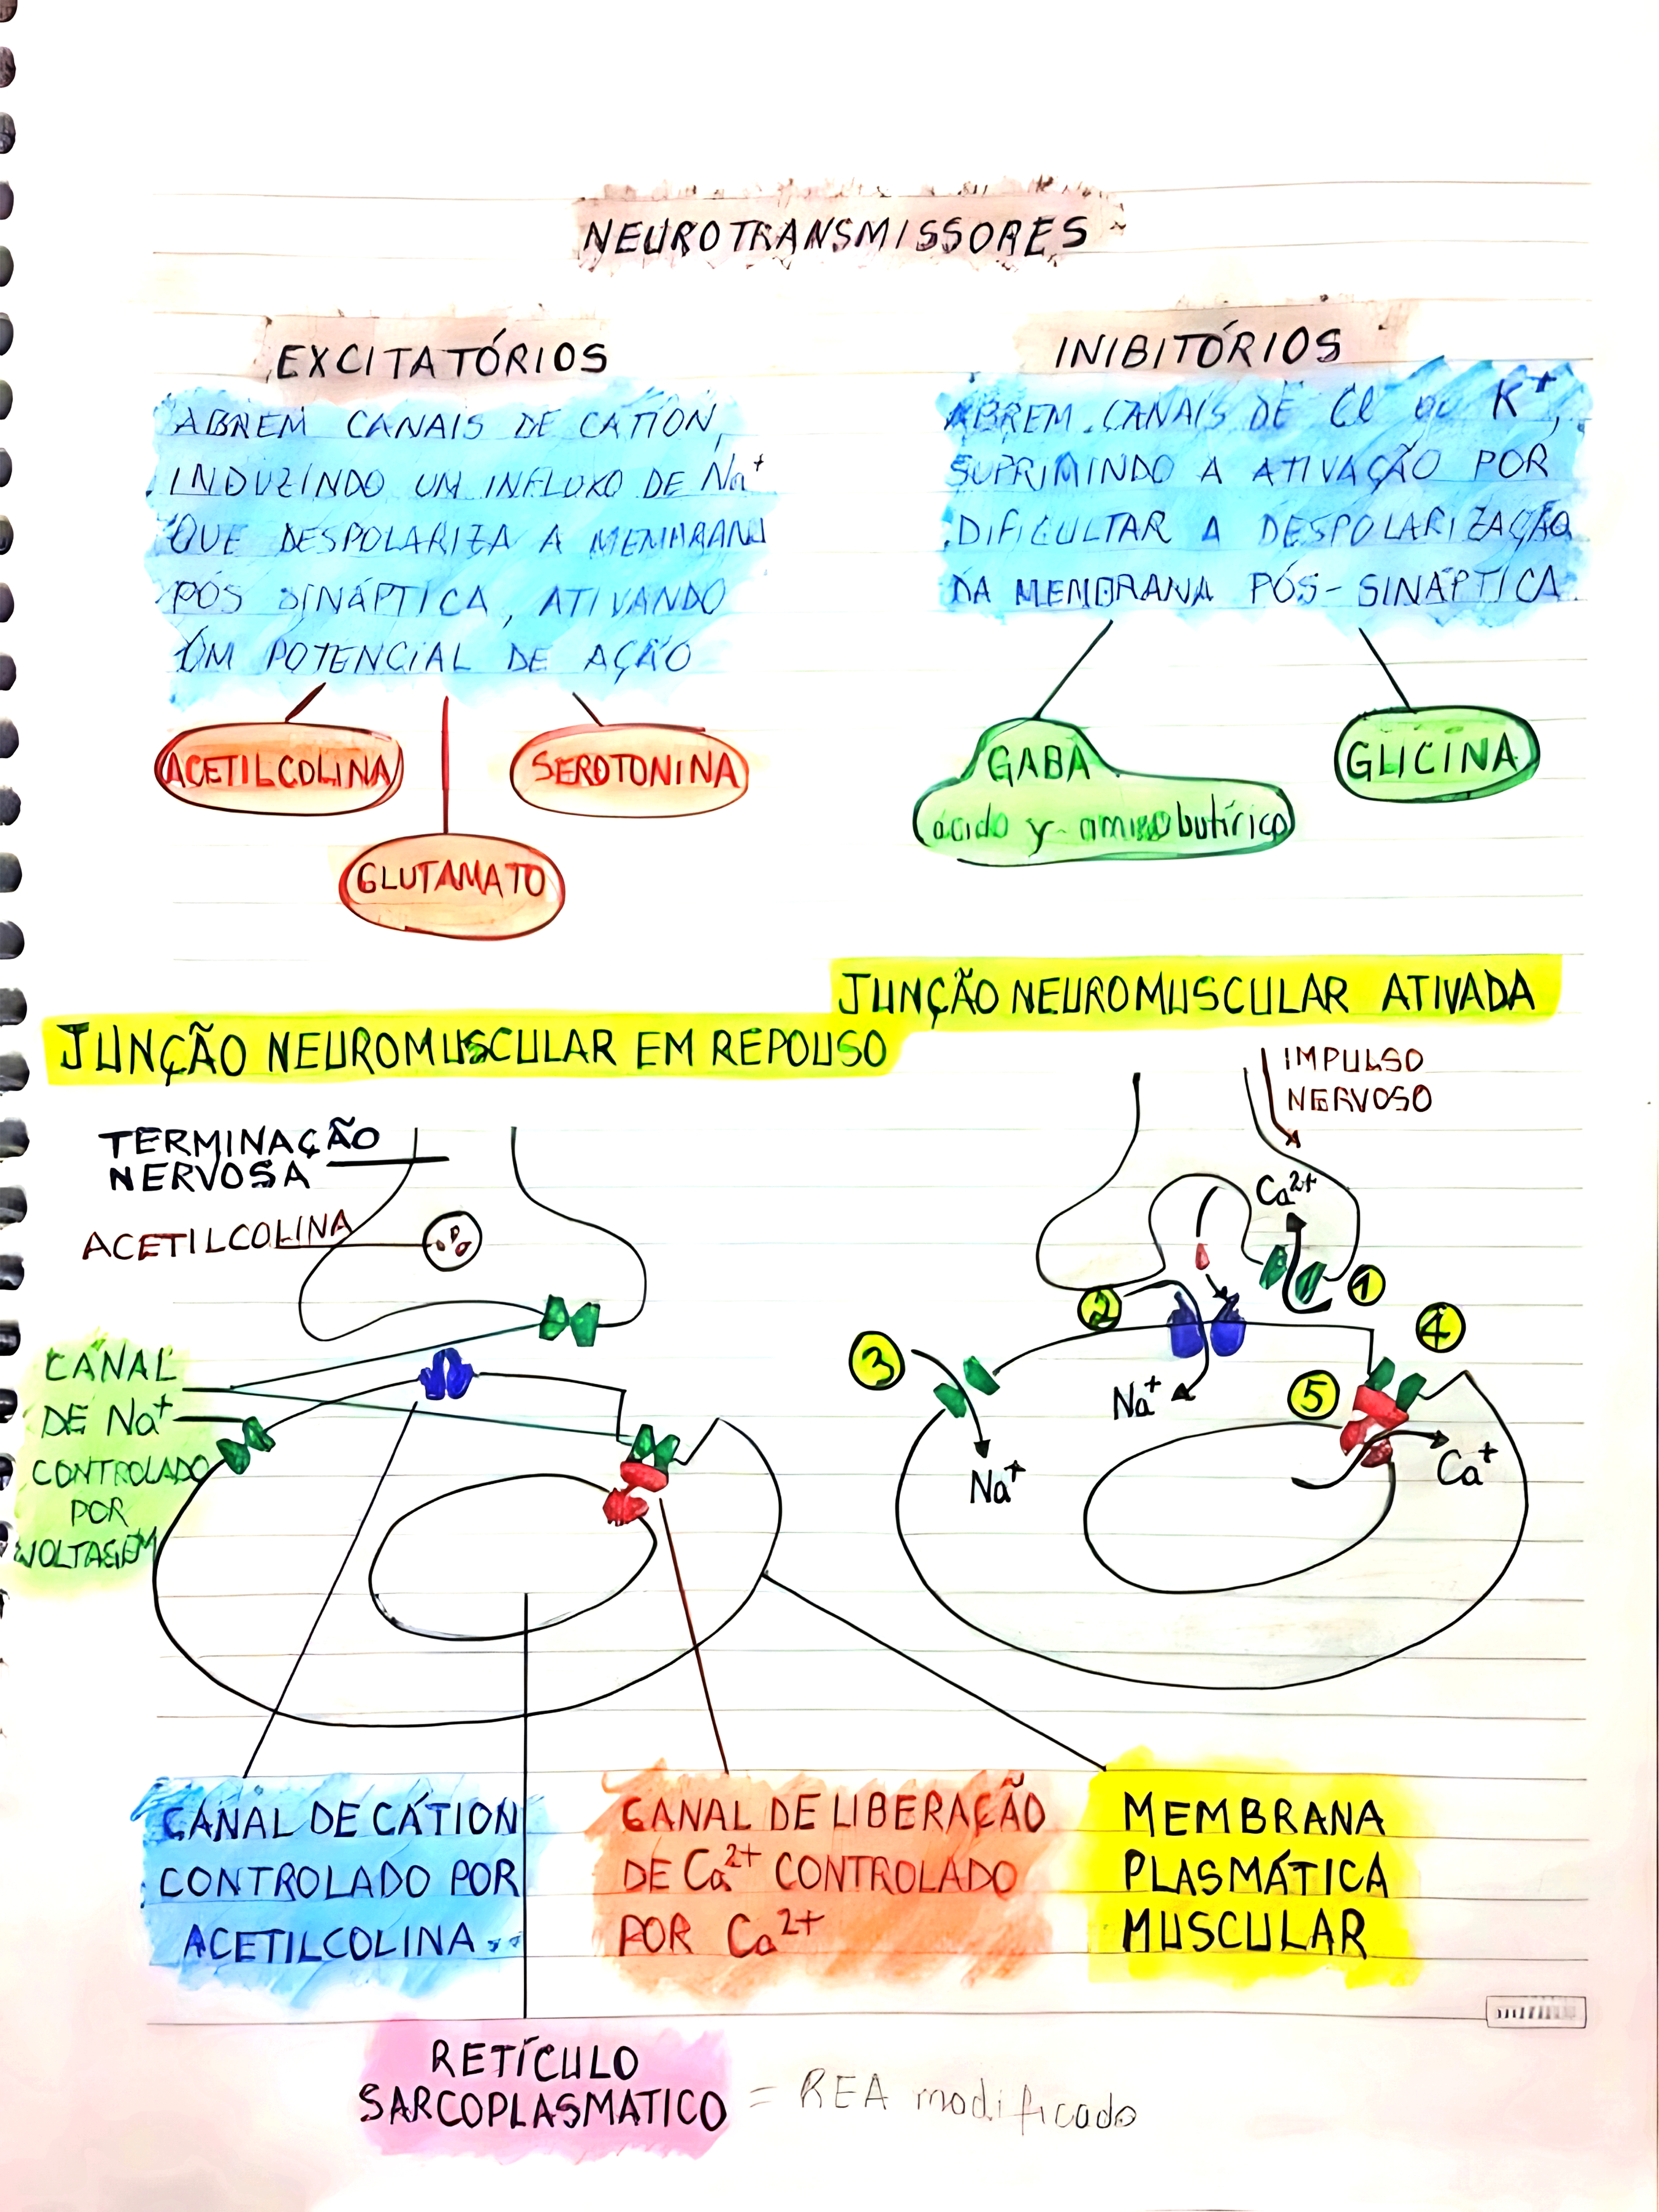 NEUROTRANSMISSORES
EXCITATÓRIOS
ABREM CANAIS DE CÁTION,
INDUZINDO UM INFLUXO DE Na⁺
QUE DESPOLARIZA A MEMBRANA
PÓS SINÁPTICA, ATIVANDO
UM POTENCIAL DE AÇÃO
ACETILCOLINA
SEROTONINA
GLUTAMATO
INIBITÓRIOS
ABREM CANAIS DE Cl ou K⁺,
SUPRIMINDO A ATIVAÇÃO POR
DIFICULTAR A DESPOLARIZAÇÃO
DA MEMBRANA PÓS-SINÁPTICA.
GABA
ácido γ-aminobutírico
GLICINA
JUNÇÃO NEUROMUSCULAR EM REPOUSO
TERMINAÇÃO
NERVOSA
ACETILCOLINA
CANAL
DE Na⁺
CONTROLADO
POR
VOLTAGEM
JUNÇÃO NEUROMUSCULAR ATIVADA
IMPULSO
NERVOSO
Ca²⁺
1
2
3
4
5
Na⁺
Na⁺
Ca⁺
CANAL DE CÁTION
CONTROLADO POR
ACETILCOLINA
CANAL DE LIBERAÇÃO
DE Ca²⁺ CONTROLADO
POR Ca²⁺
MEMBRANA
PLASMÁTICA
MUSCULAR
RETÍCULO
SARCOPLASMATICO = REA modificado